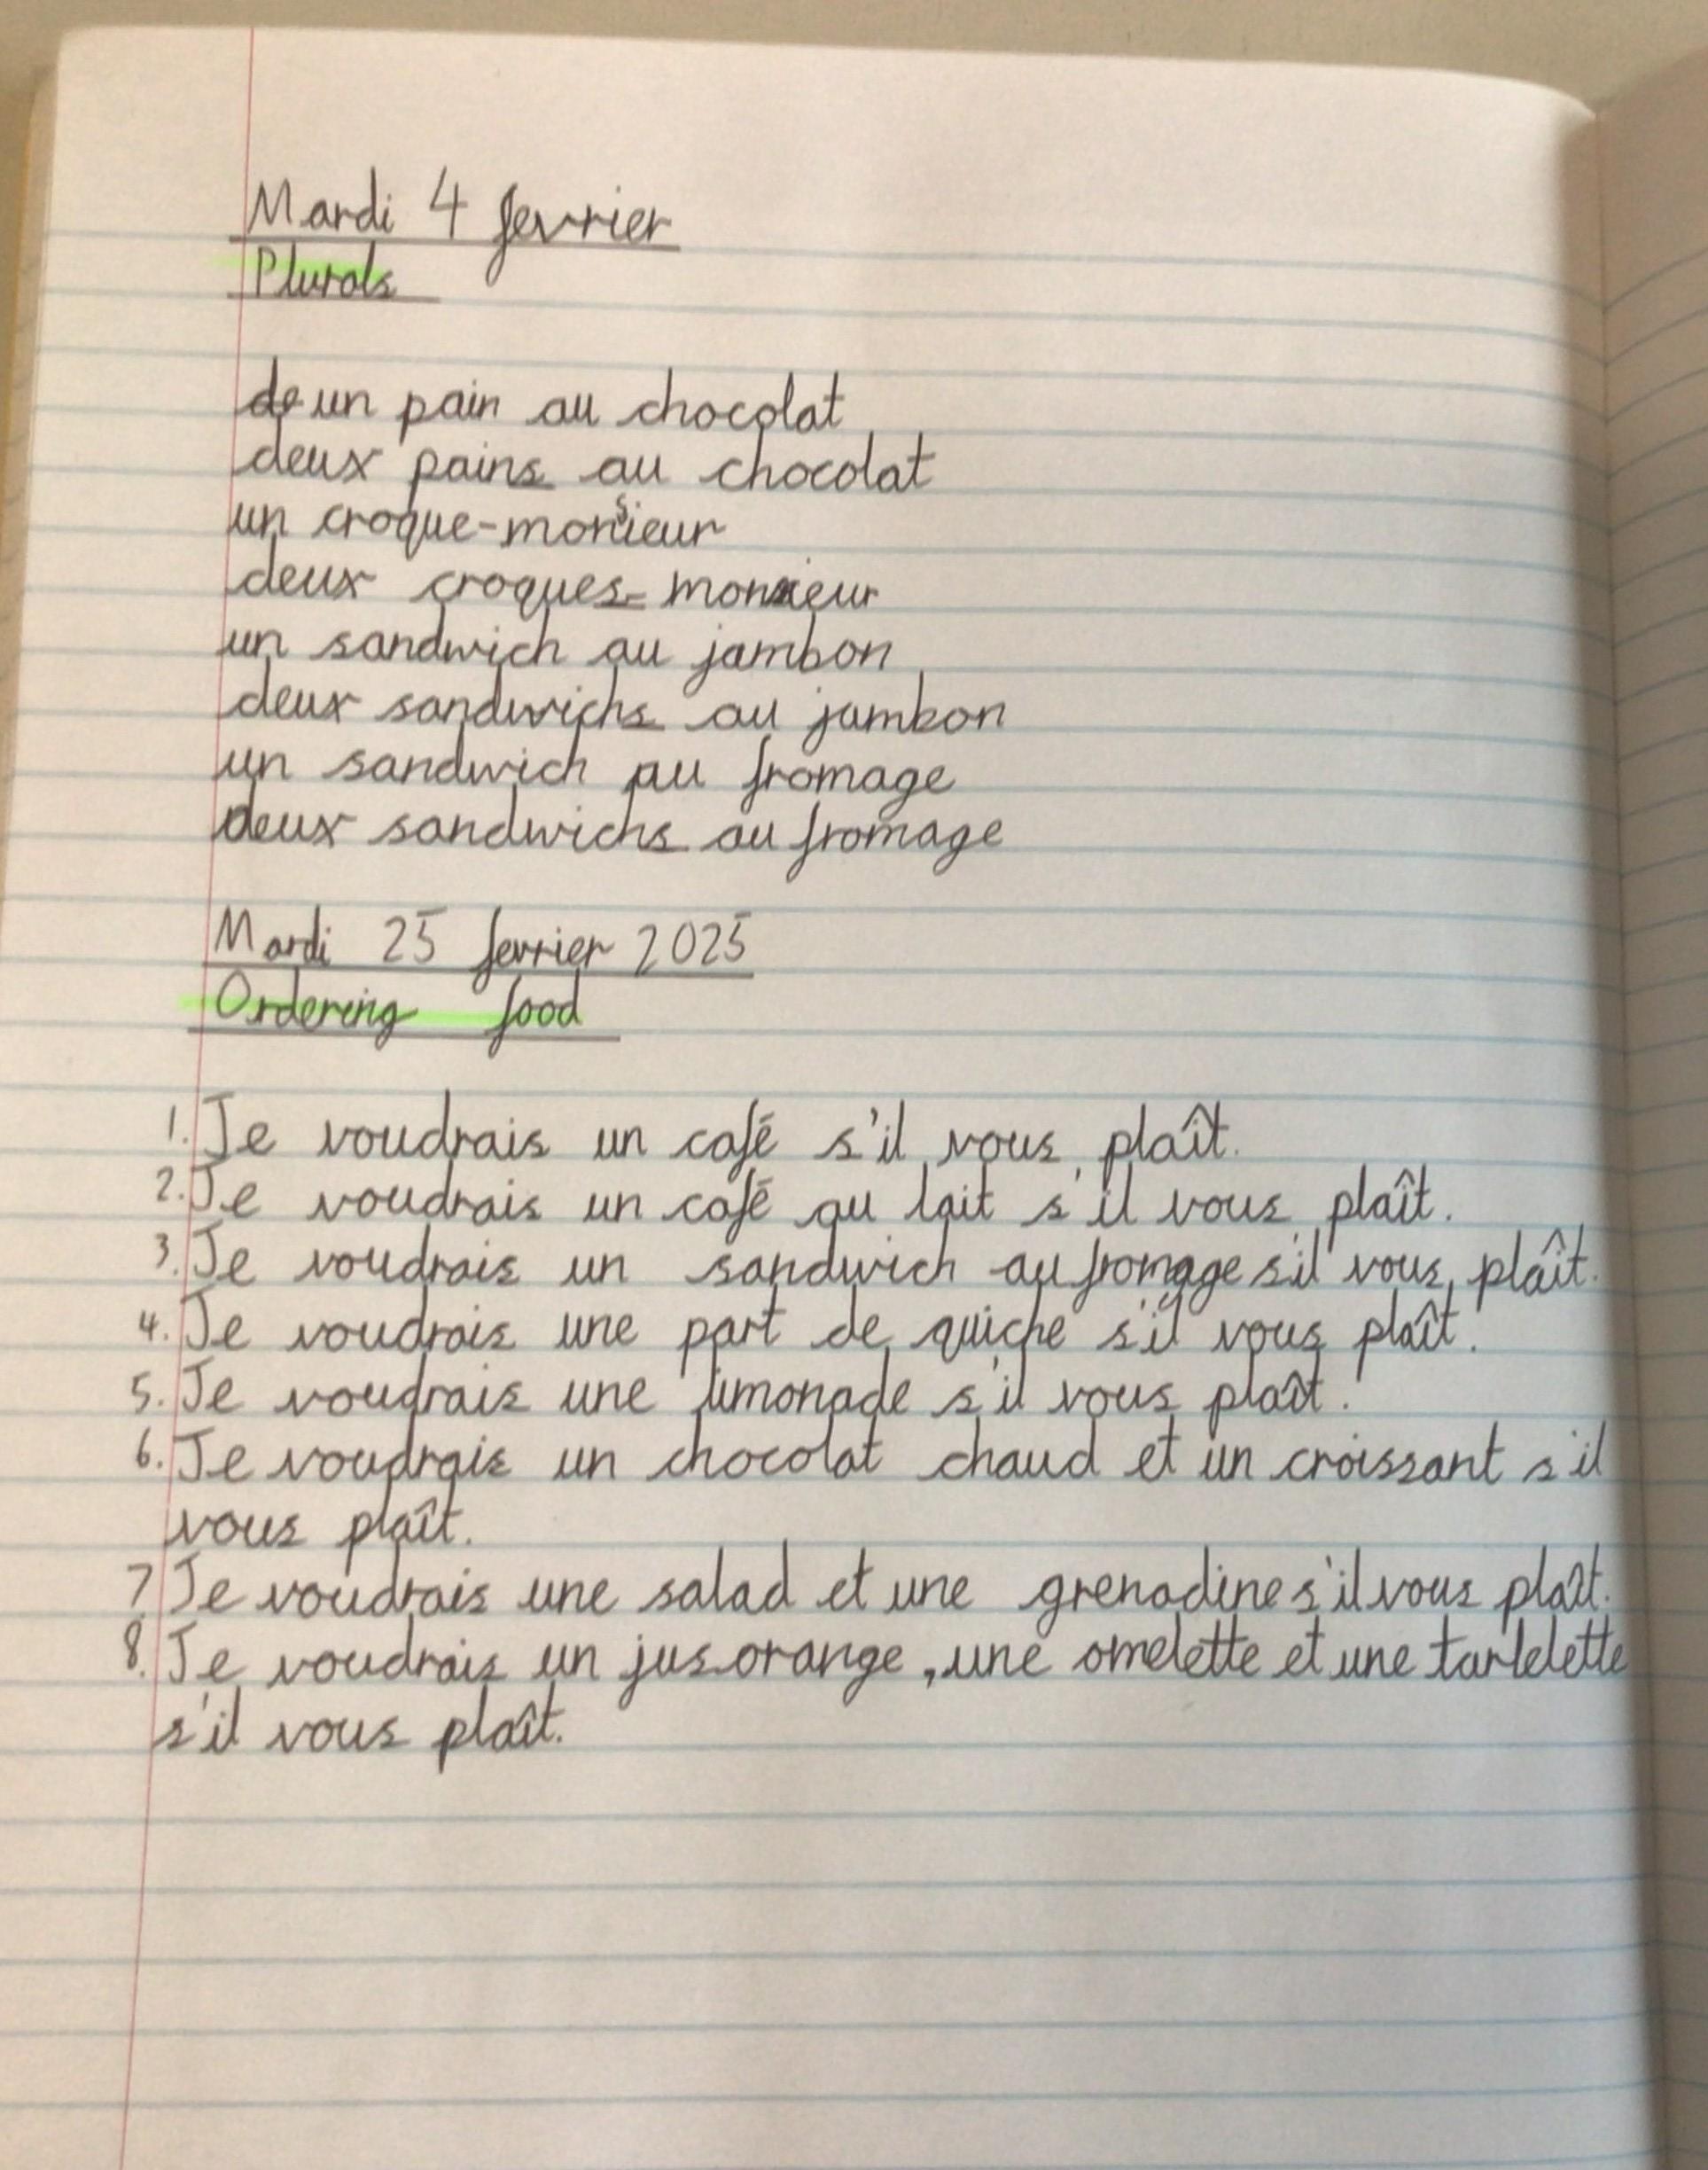 Mardi 4 fevrier
Plurals
un pain au chocolat
deux pains au chocolat
un croque-monsieur
deux croques-monsieur
un sandwich au jambon
deux sandwichs au jambon
un sandwich au fromage
deux sandwichs au fromage
Mardi 25 fevrier 2025
Ordering food
1. Je voudrais un café s'il vous plaît.
2. Je voudrais un café au lait s'il vous plaît.
3. Je voudrais un sandwich au fromage s'il vous plaît.
4. Je voudrais une part de quiche s'il vous plaît.
5. Je voudrais une limonade s'il vous plaît.
6. Je voudrais un chocolat chaud et un croissant s'il
vous plaît.
7 Je voudrais une salad et une grenadine s'il vous plaît.
8. Je voudrais un jus orange, une omelette et une tartelette
s'il vous plaît.